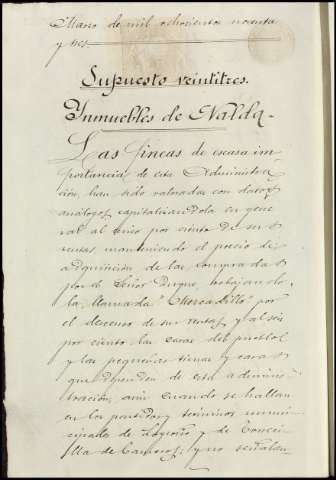 Marzo de mil ochocientos noventa
y tres
Supuesto veintitres.
Inmuebles de Nalda.
Las fincas de escasa im-
portancia de esta Administra
ción, han sido valoradas con datos
análogos, capitalizandola en gene
ral al cinco por ciento de sus
rentas manteniendo el precio de
adquisición de las compradas
por el Señor Duque, rebajando
la llamada "Mercadillo" por
el descenso de sus rentas, y al seis
por ciento las casas del pueblo
y las pequeñas tierras y casas
que dependen de esta adminis
tración, aun cuando se hallan
en los partidos y terminos muni
cipales de Logroño y de Torreci
lla de Cameros, y no señalan